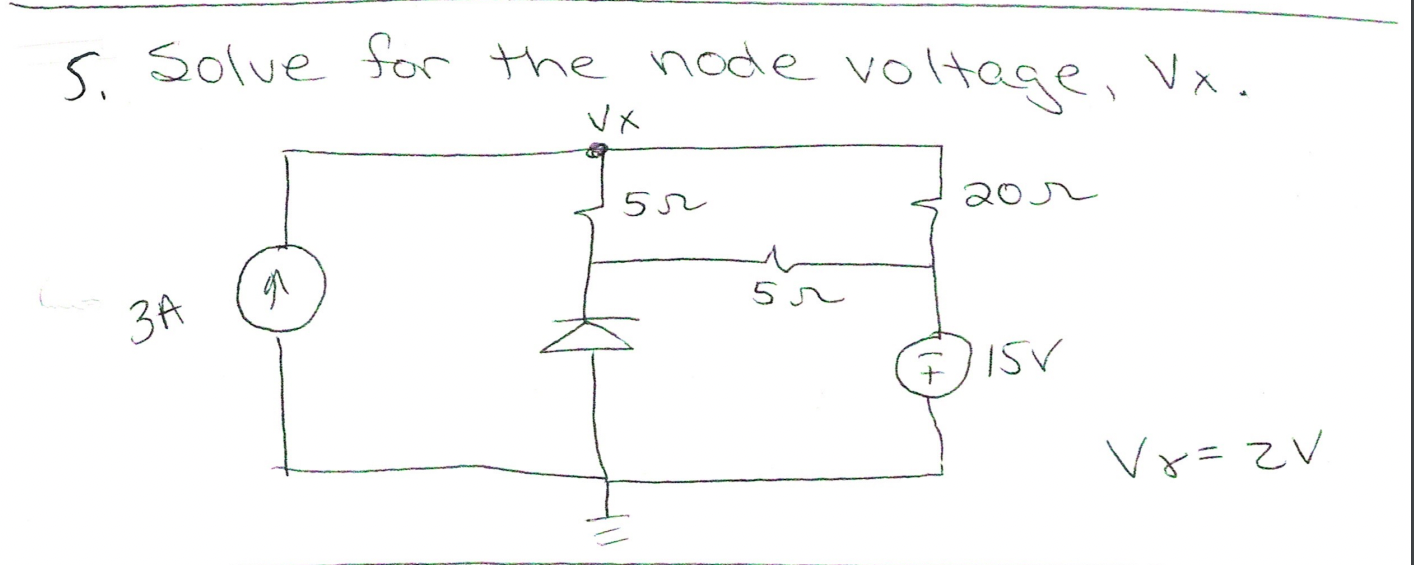 5. Solve for the node voltage, Vx.
Vx
5Ω
20Ω
5Ω
3A
↑
- +
15V
Vγ = 2V